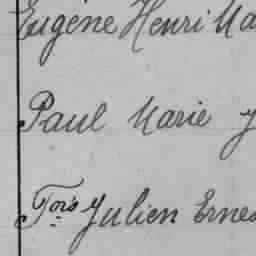 Eugène Henri Ma
Paul Marie J
Fois Julien Ernes